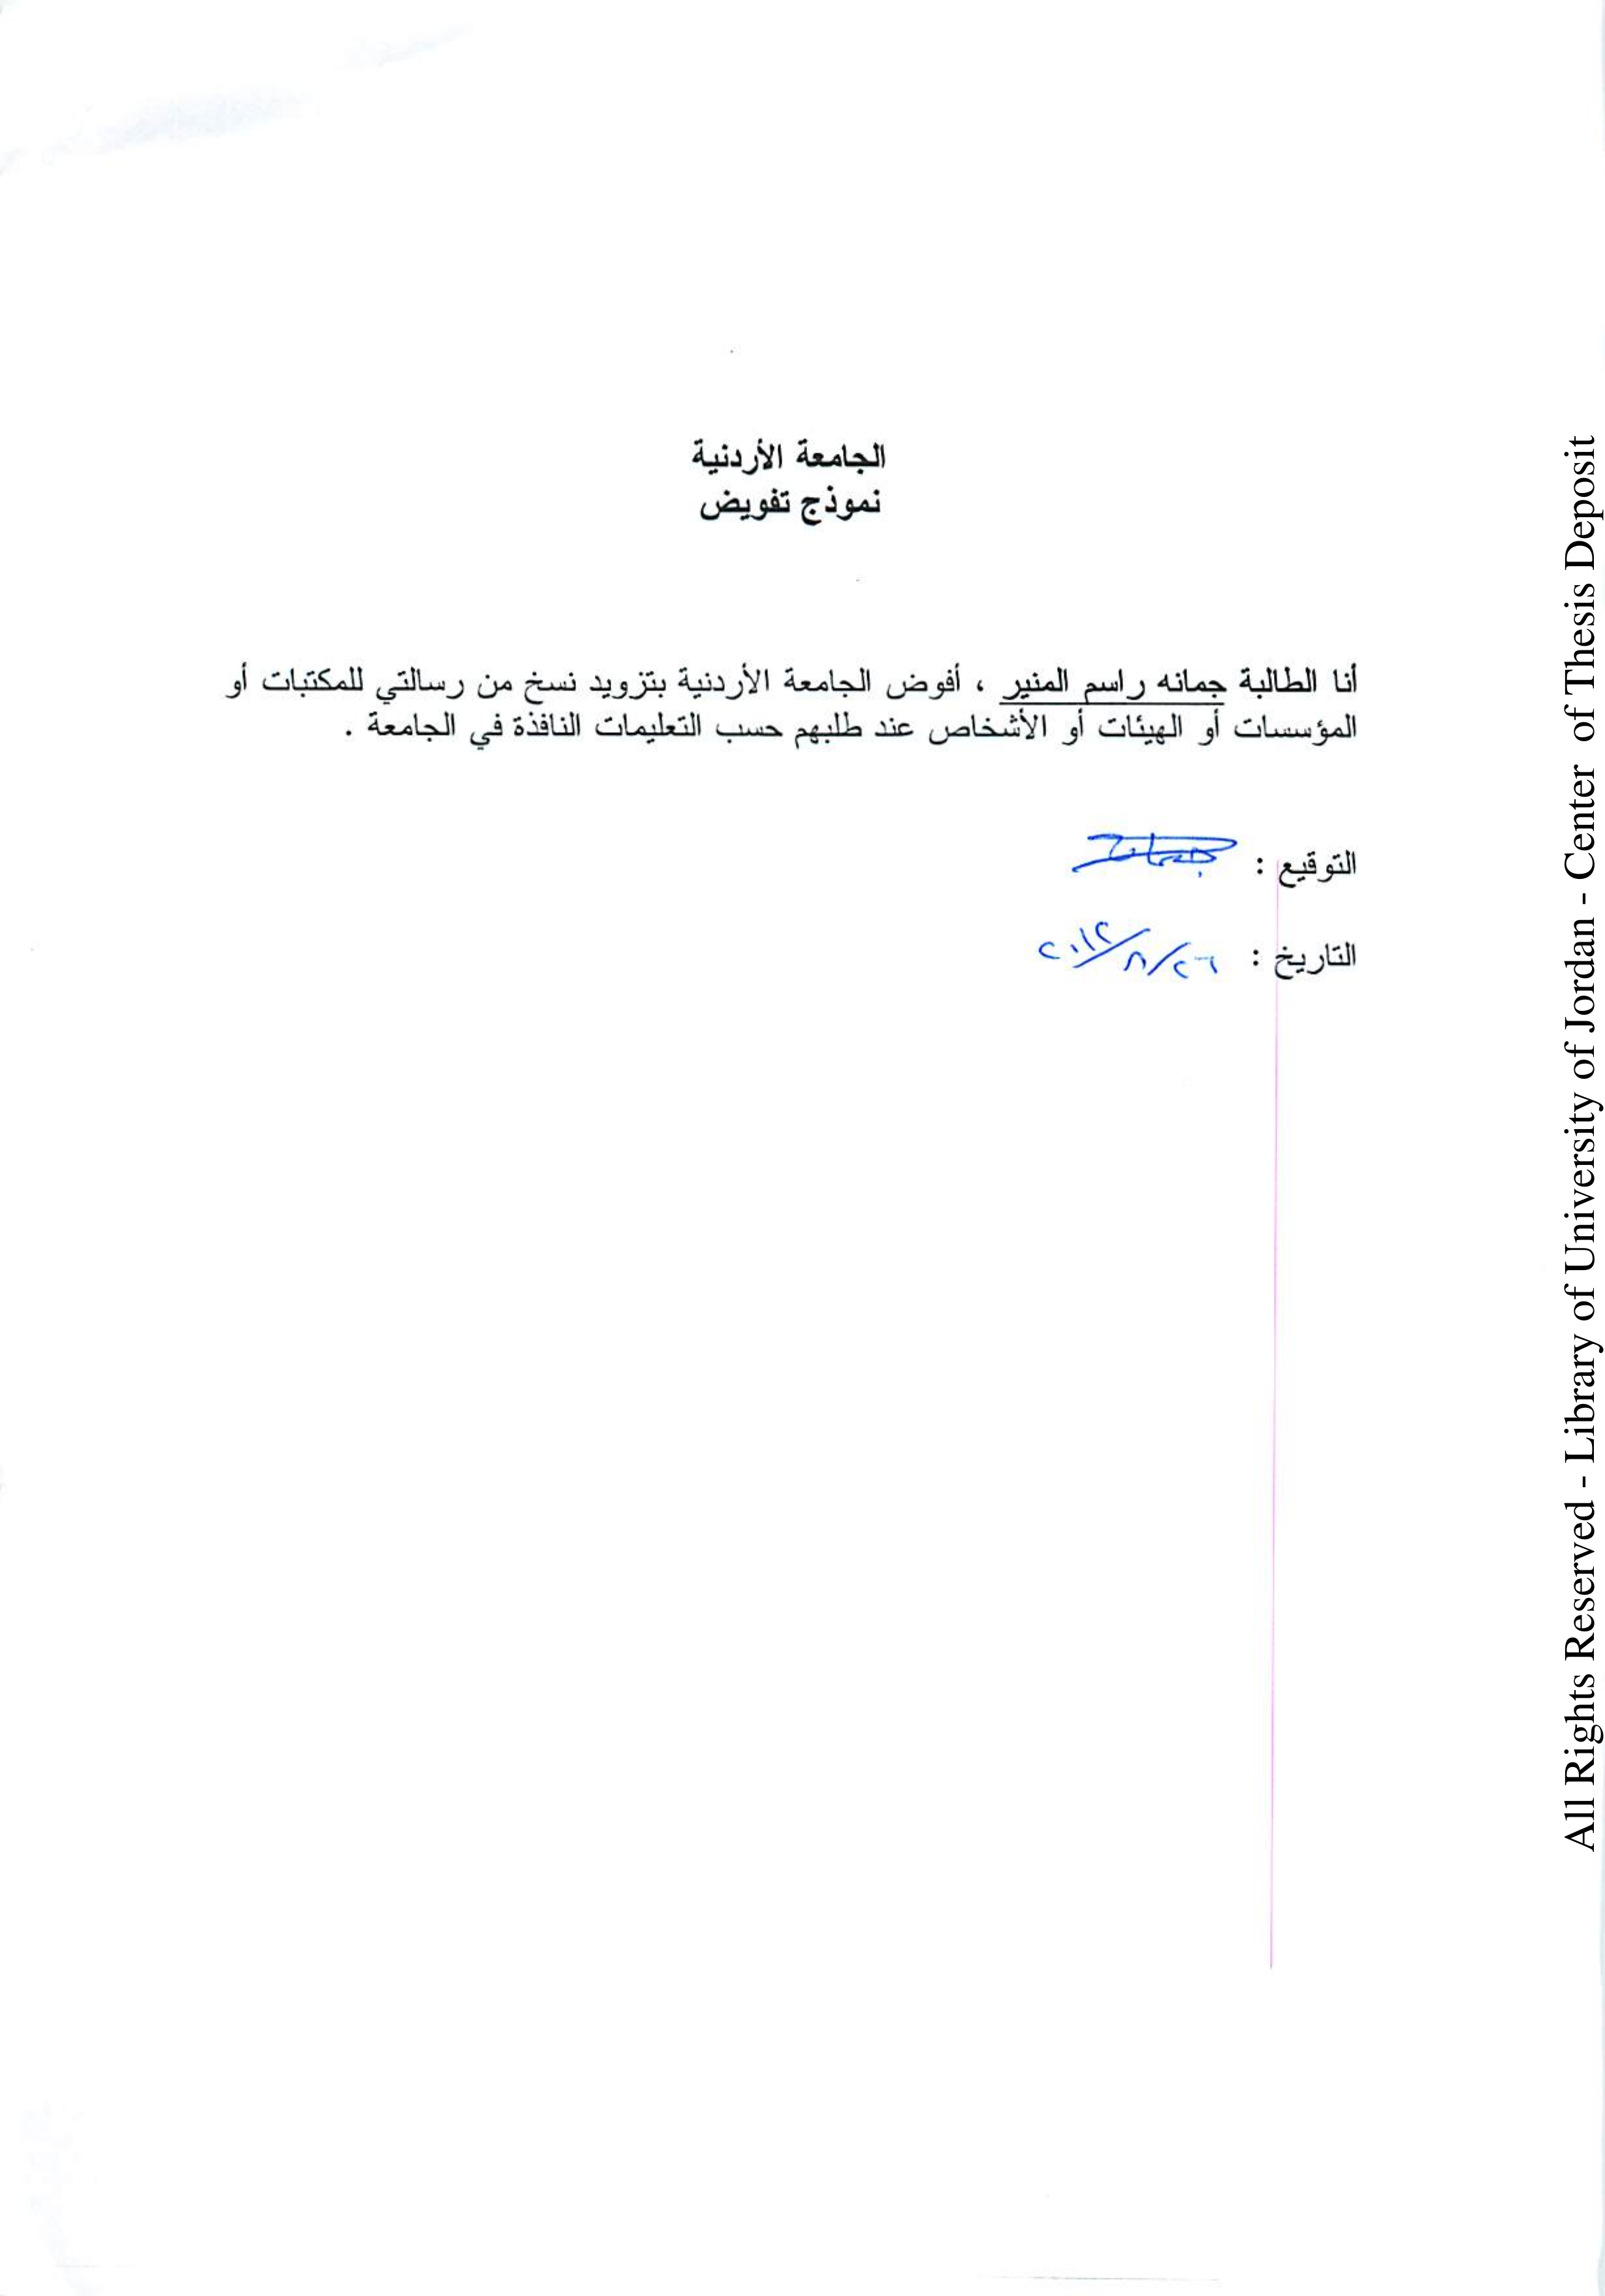 الجامعة الأردنية
نموذج تفويض
أنا الطالبة جمانه راسم المنير ، أفوض الجامعة الأردنية بتزويد نسخ من رسالتي للمكتبات أو
المؤسسات أو الهيئات أو الأشخاص عند طلبهم حسب التعليمات النافذة في الجامعة .
التوقيع : جمانة
التاريخ : ٢٦/٨/٢٠١٢
All Rights Reserved - Library of University of Jordan - Center of Thesis Deposit